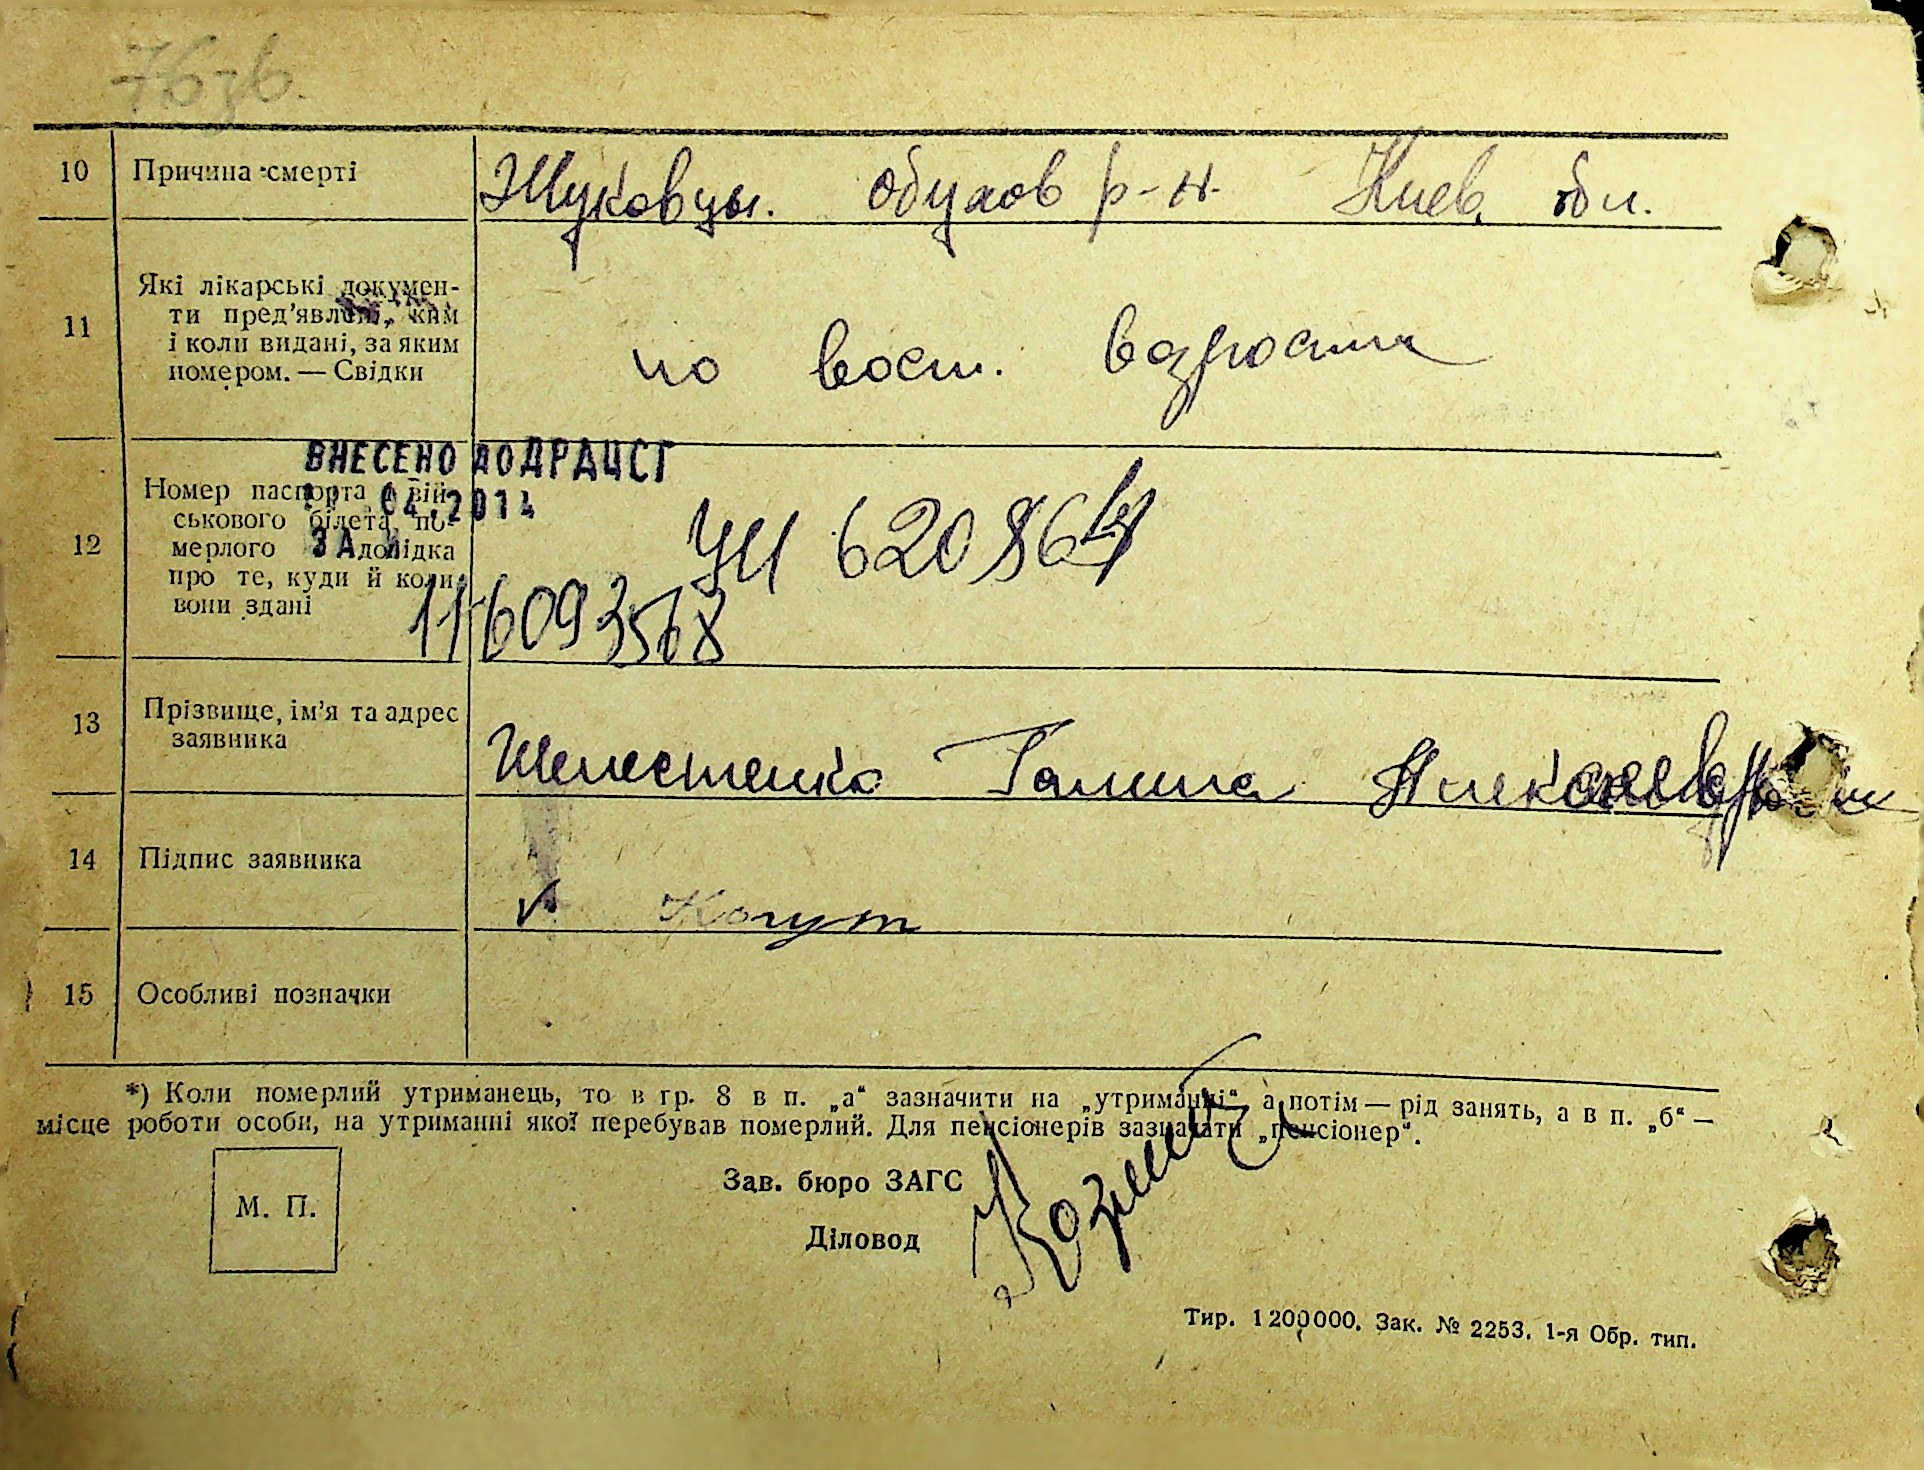 76 зв.
10 Причина смерти Жуковцы. Обухов р-н. Киев. обл.
Які лікарські докумен-
ти пред'явлені, ким
11 і коли видані, за яким
номером. — Свідки
по восст. возраста
ВНЕСЕНО ДО ДРАЦСГ
Номер паспорта й вій-
04.2014
ськового білета по-
12 мерлого й довідка
ЗА №
про те, куди й коли
вони здані
УЧ 620864
116093568
13 Прізвище, ім'я та адрес
заявника
Шелестенко Галина
14 Підпис заявника
Когут
15 Особливі позначки
*) Коли померлий утриманець, то в гр. 8 в п. „а“ зазначити на „утриманні“ а потім — рід занять, а в п. „б“ —
місце роботи особи, на утриманні якої перебував померлий. Для пенсіонерів зазначати „пенсіонер“.
М. П.
Зав. бюро ЗАГС
Діловод
Тир. 1 200 000. Зак. № 2253. 1-я Обр. тип.